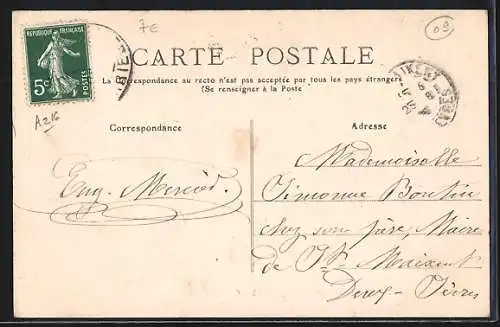 7€
09
REPUBLIQUE FRANÇAISE
5c
POSTES
A216
CARTE POSTALE
La Correspondance au recto n'est pas acceptée par tous les pays étrangers
(Se renseigner à la Poste
Correspondance
Adresse
Mademoiselle
Simonne Boutin
chez son père, Maire
de St Maixent
Deux-Sèvres
Eug.